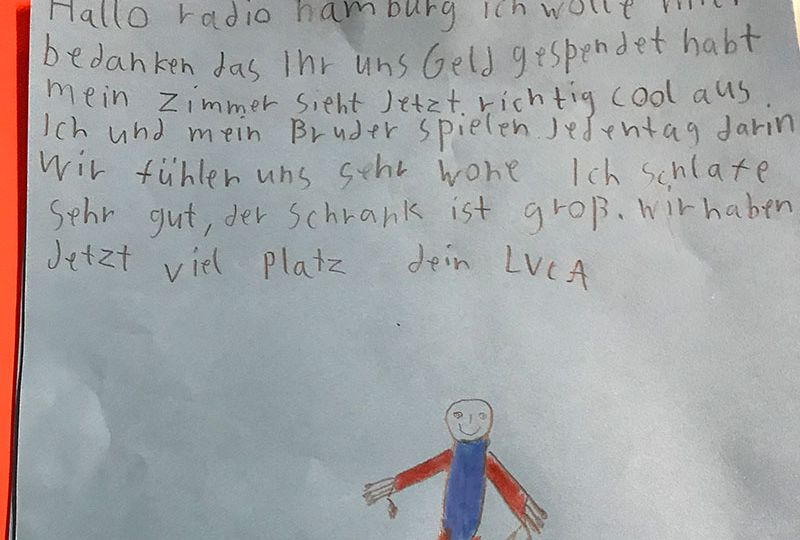 Hallo radio hamburg ich wolte
bedanken das Ihr uns Geld gespendet habt
mein zimmer sieht Jetzt richtig cool aus.
Ich und mein Bruder spielen Jedentag darin
Wir fühlen uns sehr wohe Ich schlafe
sehr gut, der schrank ist groß. wir haben
Jetzt viel platz dein LUCA